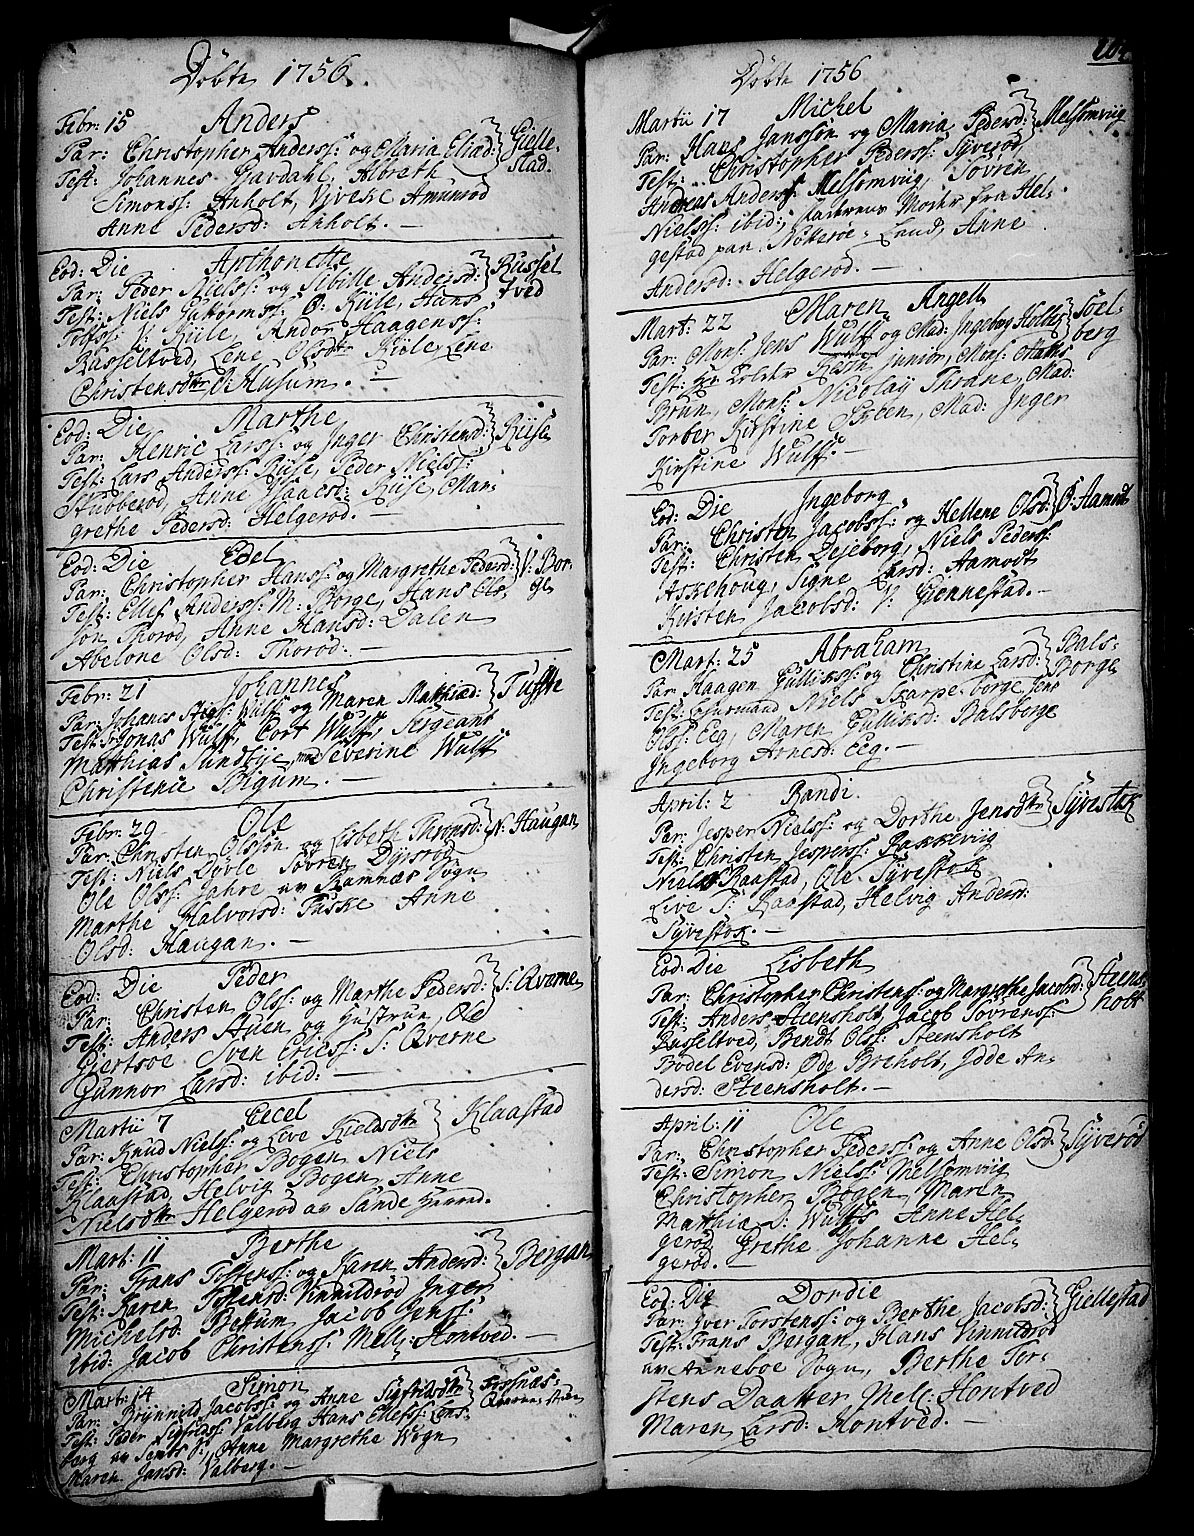 Döbte 1756.
Febr: 15 Anders
Par: Christopher Anderss: og Maria Eliæd: Gielle-
Test: Johannes Havdahl, Albreth stad.
Simonss: Anholt, Viveke Amunrød
Anne Pedersd: Anholt. —
Eod: Die Anthonette
Par: Peder Nielss: og Sibille Andersd: Russel
Test: Niels Jabormss: Ø: Riile, Hans tved
Tolfss: V: Riile, Andor Haagenss:
Russeltved, Lene Olsdtr Riile, Lene
Christensdtr Ø: Husum. —
Eod: Die Marthe
Par: Henric Larss: og Inger Christensd: Riise
Test: Lars Anderss: Riise, Peder Nielss:
Stubberød, Anne Isaacsd: Riise, Mar-
grethe Pedersd: Helgerød.
Eod: Die Edel
Par: Christopher Hanss: og Margrethe Pedersd: V: Bor-
Test: Ellef Anderss: M: Borge, Hans Ols- ge
søn Thorød, Anne Hansd: Dalen
Abelone Olsd: Thorød: —
Febr: 21 Johannes
Par: Johanes Wulf og Maren Mathiæd: Tufste
Test: Sr Jonas Wulf, Cort Wulf, Sergeant
Matthias Sundbye, Severine Wulf
Christence Bigum. —
Febr: 29 Ole
Par: Christen Olssøn og Lisbeth Thronsd: N: Haugan
Test: Niels Døvle Søvren Dyrsød
Ole Olss: Jahre av Ramnæs Sogn
Marthe Halvorsd: Fuske Anne
Olsd: Haugan. —
Eod: Die Peder
Par: Christen Olss: og Marthe Pedersd: S: Qverne
Test: Anders Huen og Hustrue, Ole
Giertsøe Sven Ericss: S: Qverne
Gunnor Larsd: ibid: —
Martii 7 Cecel
Par: Knud Nielss: og Live Kieldsdtr Klaastad
Test: Christopher Bogen Niels
Klaastad, Helvig Bogen Anne
Nielsdtr Helgerød av Sande
Mart: 11 Berthe
Par: Frans Tostenss: og Karen Andersd: Bergan
Test: Karen Tostensd: Vinnildrød Inger
Michelsd: Bettum Jacob Jenss:
ibid: Jacob Christenss: Mell: Hontved. —
Mart: 14 Simon
Par: Brynnild Jacobss: og Anne Sigfridsdtr Fossnæs-
Test: Peder Sigfridss: Valberg Hans Ellefss: Lens- Qverne
berg av Sembs S:, Anne Margrethe Wogn
Maren Jansd: Valberg. —
Döbte 1756
Martii 17 Michel
Par: Hans Janssøn og Maria Pedersd: Melsomviig
Test: Christopher Pederss: Syverød
Andreas Anderss: Melsomviig, Søvren
Nielss: ibid:, Faderens Moder fra Hel-
gestad paa Nøtterøe-Land, Anne
Andersd: Helgerød. —
Mart: 22 Maren Angell
Par: Mons: Jens Wulff og Mad: Ingeborg Holter Soel-
Test: Hr Colder Rasch junior, Mons: Mathis berg
Brun, Mons: Nicolaÿ Thrane, Mad:
Torber Kirstine Østen, Mad: Inger
Kirstine Wulff. —
Eod: Die Ingeborg
Par: Christen Jacobss: og Hellene Olsd: Ø: Aamodt
Test: Christen Lejeborg, Niels Pederss:
Askehoug, Signe Larsd: Aamodt
Kirsten Jacobsd: V: Giennestad. —
Mart: 25 Abraham
Par: Haagen Gullikss: og Christine Larsd: Bals-
Test: Niels Skarpe-borge Jens Borge
Olss: Eeg, Maren Gulliksd: Balsborge
Ingeborg Arnesd: Eeg. —
April: 2 Randi.
Par: Jesper Nielss: og Dorthe Jensdtr Syvestok
Test: Christen Jesperss: Bakkeviig
Niels Raastad, Ole Syvestok
Live S: Raastad, Helvig Andersd:
Syvestok. —
Eod: Die Lisbeth
Par: Christopher Christenss: og Margrethe Jacobsd: Steens-
Test: Anders Steensholt, Jacob Søvrenss: holt
Russeltved, Brendt Olss: Steensholt
Bodel Evensd: Øde Breholt, Idde An-
dersd: Steensholt. —
April: 11 Ole
Par: Christopher Pederss: og Anne Olsd: Syverød
Test: Simon Nielss: Melsomviig
Christopher Bogen Maren
Matthiæ D: Wulfs Anne Hel-
gerød Grethe Johanne Hel-
gerød. —
Eod: Die Dordie
Par: Iver Torstenss: og Berthe Jacobsd: Giellestad
Test: Frans Bergan, Hans Vinnildrød
av Anneboe Sogn, Berthe Tor-
stens Daatter Mell: Hontved
Maren Larsd: Hontved. —